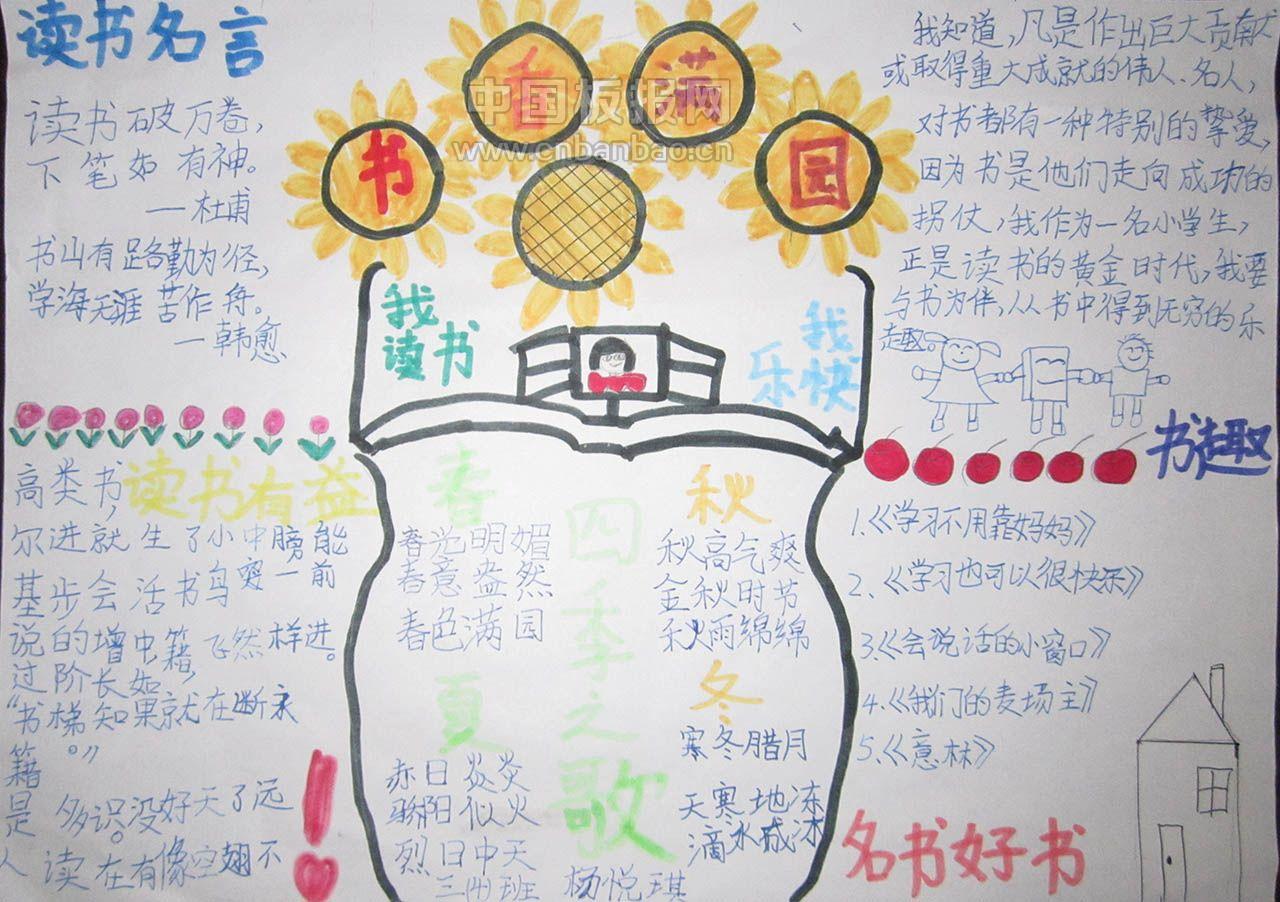 读书名言
读书破万卷,
下笔如有神。
—杜甫
书山有路勤为径,
学海无涯苦作舟。
—韩愈
书香满园
中国板报网
www.cnbanbao.cn
我读书
我快乐
我知道,凡是作出巨大贡献
或取得重大成就的伟人、名人,
对书都有一种特别的挚爱,
因为书是他们走向成功的
拐杖,我作为一名小学生,
正是读书的黄金时代,我要
与书为伴,从书中得到无穷的乐
趣。
书趣
读书有益
高尔基说过“书籍是人
类进步的阶梯。”多读
书,就会增长知识。在
生活中如果没有
了书籍,就好像
小鸟飞在天空
中突然断了翅
膀一样永远不
能前进。
四季之歌
春
春光明媚
春意盎然
春色满园
夏
赤日炎炎
骄阳似火
烈日中天
秋
秋高气爽
金秋时节
秋雨绵绵
冬
寒冬腊月
天寒地冻
滴水成冰
三(4)班 杨悦琪
1.《学习不用靠妈妈》
2.《学习也可以很快乐》
3.《会说话的小窗口》
4.《我们的麦场主》
5.《意林》
名书好书